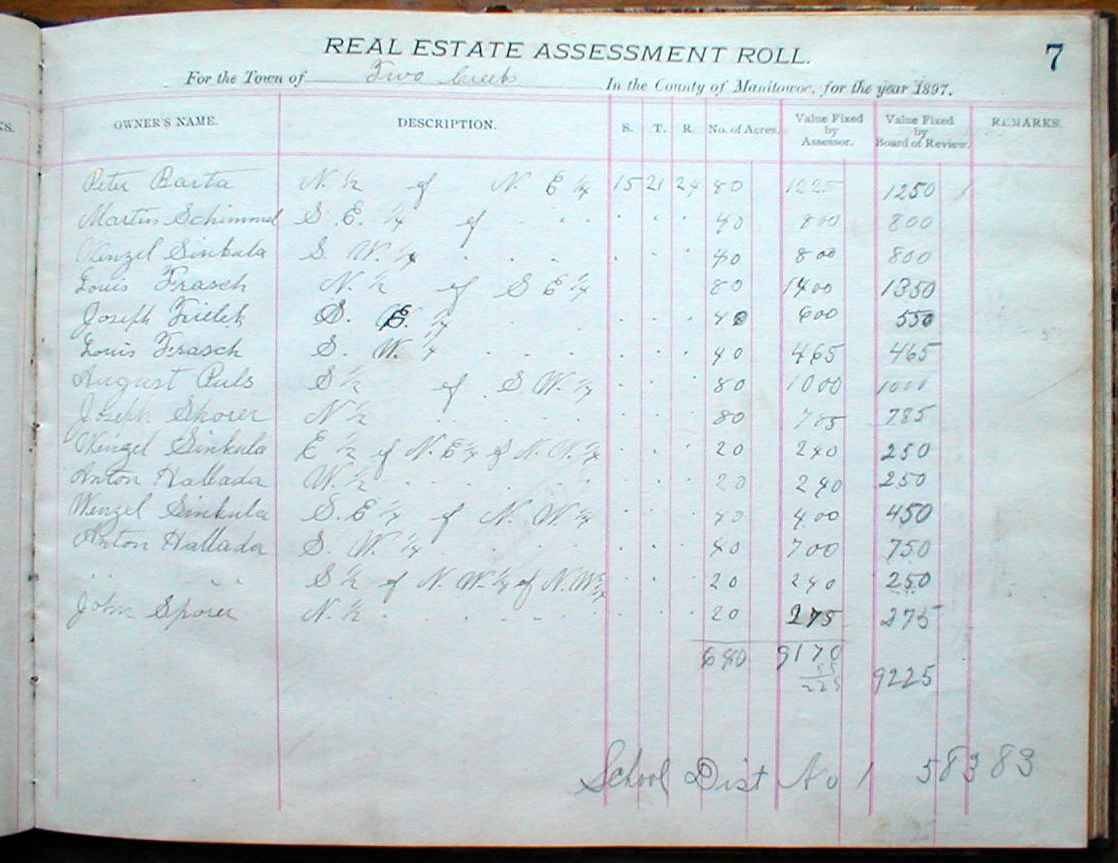 REAL ESTATE ASSESSMENT ROLL. 7
For the Town of Two Creeks In the County of Manitowoc, for the year 1897.
OWNER'S NAME. DESCRIPTION. S. T. R. No. of Acres. Value Fixed by Assessor. Value Fixed by Board of Review. REMARKS.
Peter Barta N. ½ of N. E ¼ 15 21 24 80 1225 1250
Martin Schimmel S. E. ¼ of 40 800 800
Wenzel Sinkula S. W. ¼ 40 800 800
Louis Frasch N. ½ of S E ¼ 80 1400 1350
Joseph S. E. ¼ 40 600 550
Louis Frasch S. W. ¼ 40 465 465
August Puls S ½ of S. W. ¼ 80 1000 1000
Joseph Sporer N ½ 80 785 785
Wenzel Sinkula E ½ of N. E ¼ of N. W. ¼ 20 240 250
Anton Hallada W. ½ 20 240 250
Wenzel Sinkula S. E ¼ of N. W. ¼ 40 400 450
Anton Hallada S. W. ¼ 40 700 750
" " S ½ of N. W. ¼ of N. W ¼ 20 240 250
John Sporer N. ½ 20 275 275
680 9170
55
225 9225
School Dist No 1 58383